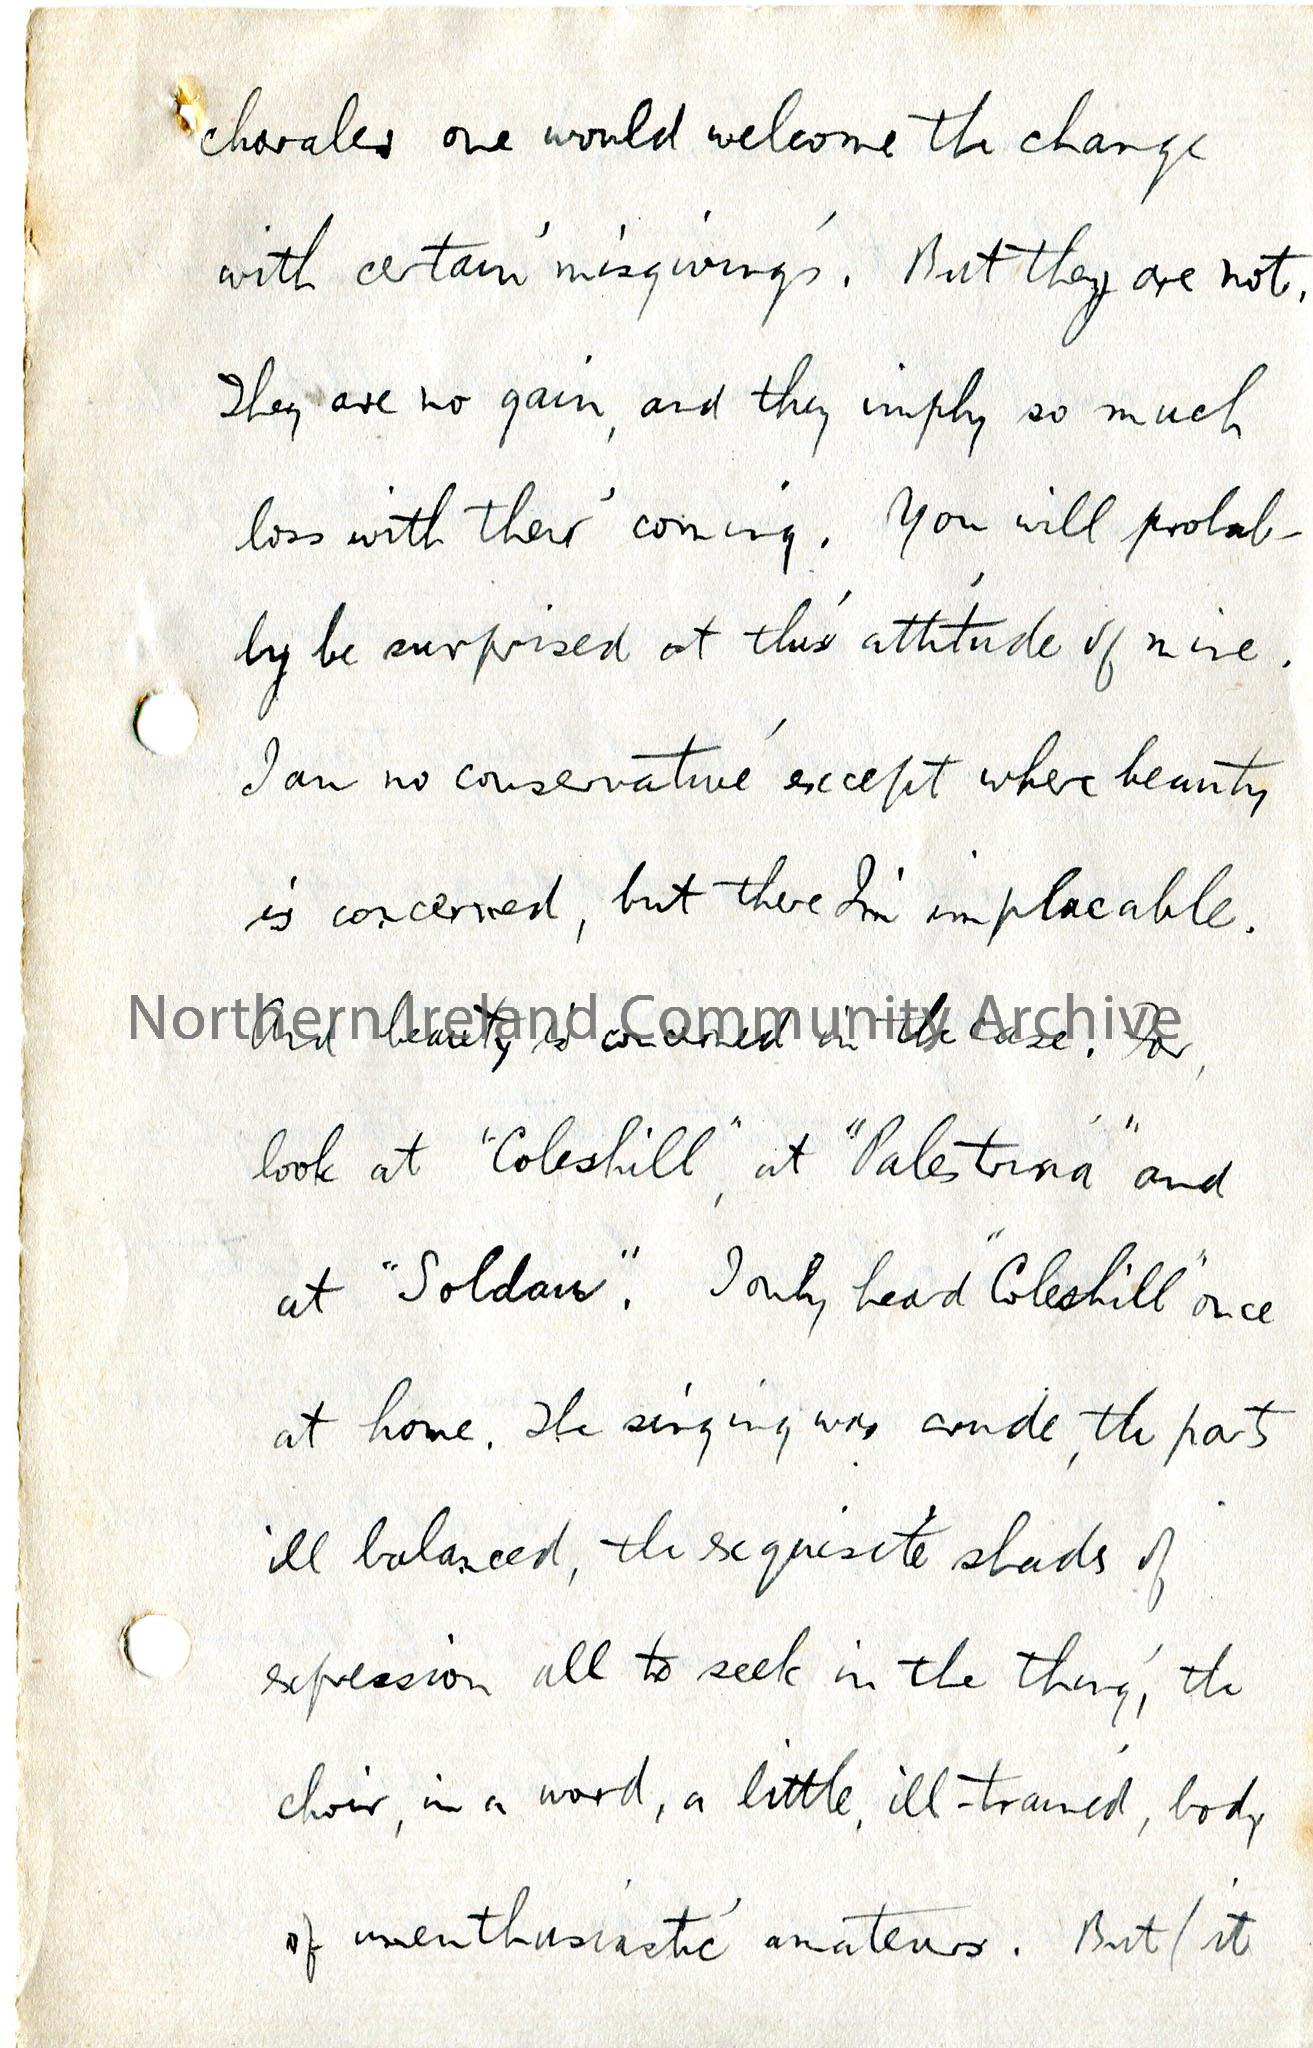 chorales one would welcome the change
with certain misgivings. But they are not.
They are no gain, and they imply so much
loss with their coming. You will probab-
ly be surprised at this attitude of mine.
I am no conservative except where beauty
is concerned, but there I'm implacable.
Northern Ireland Community Archive
And beauty is concerned in the case. For,
look at "Coleshill", at "Palestrina" and
at "Soldau". I only heard "Coleshill" once
at home. The singing was crude, the parts
ill balanced, the exquisite shades of
expression all to seek in the thing, the
choir, in a word, a little, ill-trained, body
of unenthusiastic amateurs. But (it